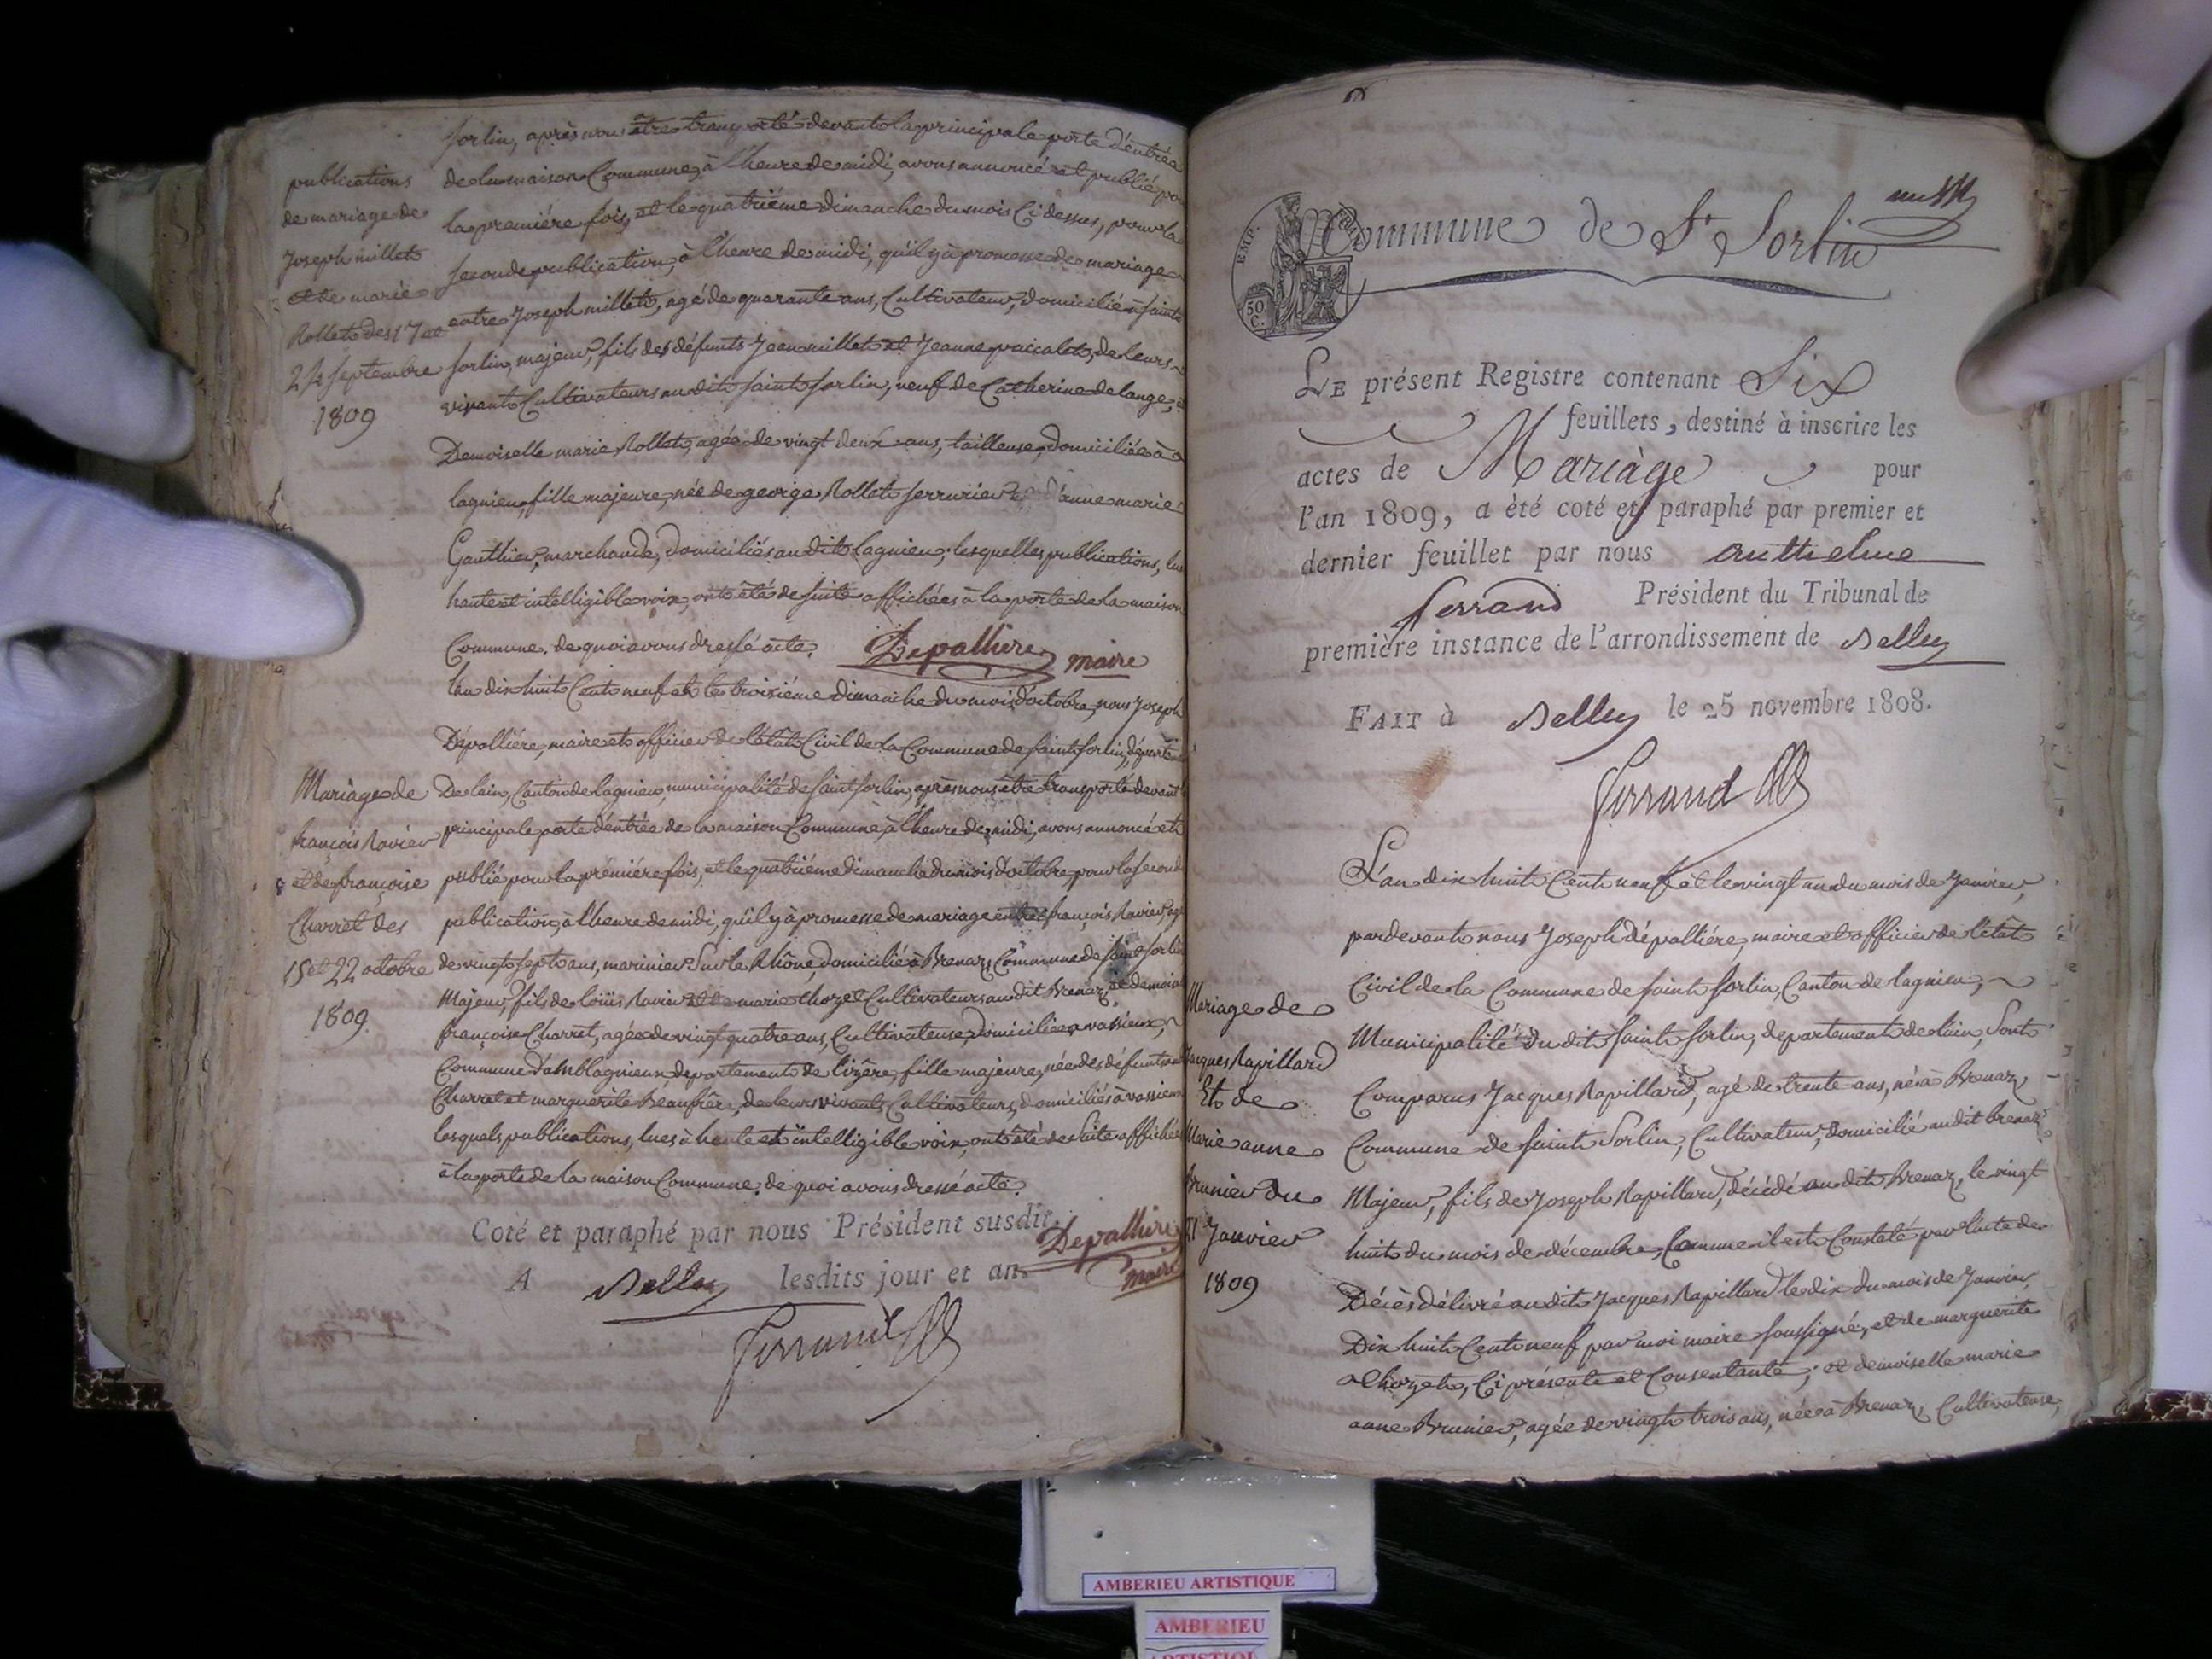 Sorlin, après nous être transporté devant la principale porte d'entrée
de la maison Commune, à l'heure de midi, avons annoncé et publié po
la première fois, et le quatrième dimanche du mois Ci dessus, pour la
seconde publication, à l'heure de midi, qu'il y à promesse de mariage
entre Joseph millet, agé de quarante ans, Cultivateur, domicilié à saint
Sorlin, majeur, fils des défunts Jean millet et Jeanne de leurs
vivants Cultivateurs audit Saint Sorlin, neuf de Catherine delange,
Demoiselle marie Rollet, agée de vingt deux ans, tailleuse, domiciliée à
lagnieu, fille majeure, née de george Rollet serrurier d'anne marie
Gauthier, marchande, domiciliés audit lagnieu; lesquelles publications, lue
haute et intelligible voix, ont été de suite affichées à la porte de la maison
Commune. de quoi avons dressé acte. Depalliere maire
publications
de mariage de
Joseph millet
et de marie
Rollet des 17 et
24 Septembre
1809
l'an dix huit Cent neuf et le troisième dimanche du mois d'octobre, nous Joseph
Dépallière, maire et officier de l'état Civil de la Commune de Saint Sorlin, départ
De lain, Canton de lagnieu, municipalité de Saint Sorlin, après nous être transporté devant
principale porte d'entrée de la maison Commune, à l'heure de midi, avons annoncé et
publié pour la première fois, et le quatrième dimanche du mois d'octobre, pour la second
publication, à l'heure de midi, qu'il y à promesse de mariage entre françois Ravier, agé
de vingt sept ans, marinier Sur le Rhône domicilié à Brenaz, Commune de Saint Sorlin
Majeur, fils de loüis Ravier et de marie thozet Cultivateurs audit Brenaz, et demoise
françoise Charret, agée de vingt quatre ans, Cultivateuse, domiciliée à vassieux,
Commune d'amblagnieux departement de l'izère, fille majeure, née des défunts
Charret et marguerite Béaufrêr, de leurs vivants Cultivateurs, domiciliés à vassieux
lesquels publications, lues à haute et intelligible voix, ont été de Suite affichée
à la porte de la maison Commune. de quoi avons dressé acte.
Mariage de
françois Ravier
et de françoise
Charret des
15 et 22 octobre
1809.
Coté et paraphé par nous Président susdit.
Depalliere
maire
A Belley lesdits jour et an.
Ferrand
EMP.
50 C.
Commune de St Sorlin
LE présent Registre contenant Six
feuillets, destiné à inscrire les
actes de Mariàge pour
l'an 1809, a été coté et paraphé par premier et
dernier feuillet par nous Anthelme
ferrand Président du Tribunal de
première instance de l'arrondissement de Belley
FAIT à Belley le 25 novembre 1808.
Ferrand
L'an dix huit Cent neuf et le vingt un du mois de Janvier,
pardevant nous Joseph dépallière, maire et officier de l'état
Civil de la Commune de Saint Sorlin, Canton de lagnieu,
Municipalité du dit Saint Sorlin, departement de lain, Sont
Comparus Jacques Rapillard, agé de trente ans, né à Brenaz,
Commune de Saint Sorlin, Cultivateur, domicilié audit brenaz
Majeur, fils de Joseph Rapillard, décédé au dit Brenaz, le vingt
huit du mois de décembre, Comme il est Constaté par l'acte de
Décès délivré au dit Jacques Rapillard le dix du mois de Janvier
Dix huit Cent neuf par moi maire soussigné, et de marguerite
thozet, Ci présente et Consentante; et demoiselle marie
anne Brunier, agée de vingt trois ans, née à Brenaz, Cultivateuse,
Mariage de
Jacques Rapillard
Et de
Marie anne
Brunier du
21 Janvier
1809
AMBERIEU ARTISTIQUE
AMBERIEU
ARTISTIQUE